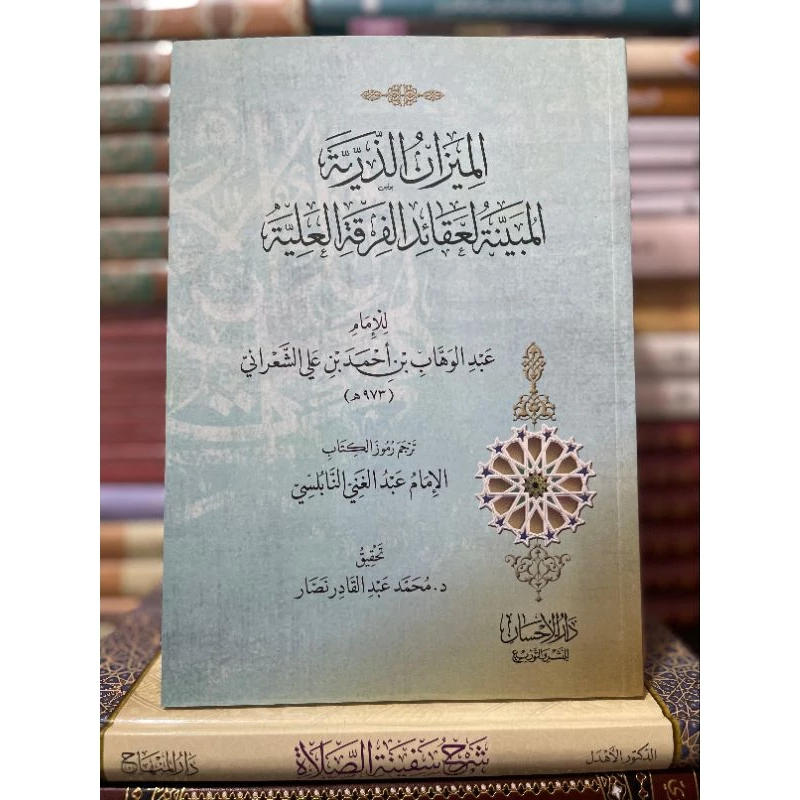 المِيزَانُ الذَّرِّيَّةُ
المُبَيِّنَةُ لِعَقَائِدِ الفِرْقَةِ العَلِيَّةِ
لِلْإِمَامِ
عَبْدِ الوَهَّابِ بْنِ أَحْمَدَ بْنِ عَلِي الشَّعْرَانِيّ
(٩٧٣هـ)
تَرْجَمَ رُمُوزَ الكِتَابِ
الإِمَامُ عَبْدُ الغَنِيّ النَّابُلْسِيّ
تَحْقِيقُ
د. مُحَمَّد عَبْد القَادِر نَصَّار
دَارُ الإِحْسَان
لِلنَّشْرِ وَالتَّوْزِيع
الدكتور الأهدل
شرح سفينة الصلاة
دار المنهاج